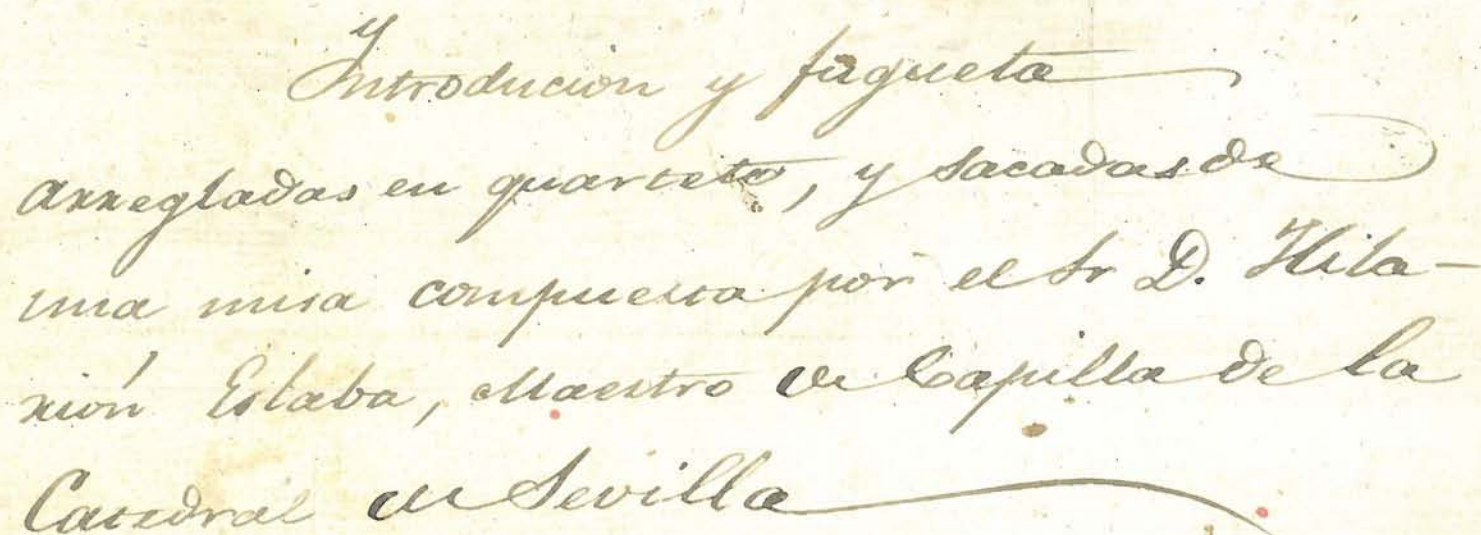 Introducion y fugueta
arregladas en quarteto, y sacadas de
una misa compuesta por el Sr D. Hila-
rión Eslaba, Maestro de Capilla de la
Catedral de Sevilla